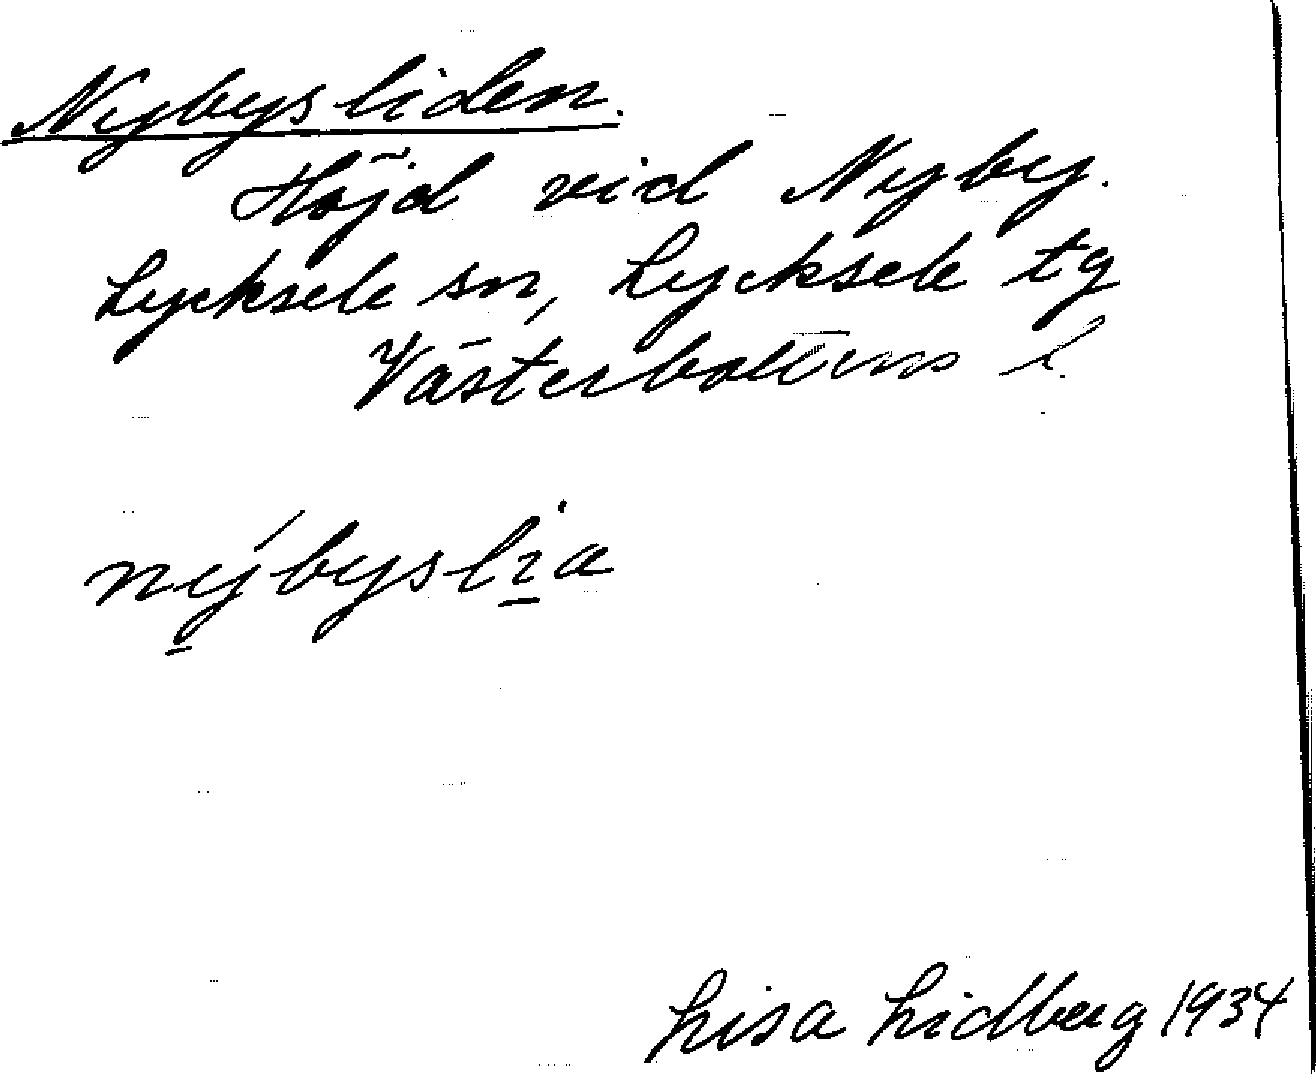 Nybysliden.
Höjd vid Nyby.
Lycksele sn, Lycksele tg
Västerbottens l.
nýbyslia
Lisa Lidberg 1934